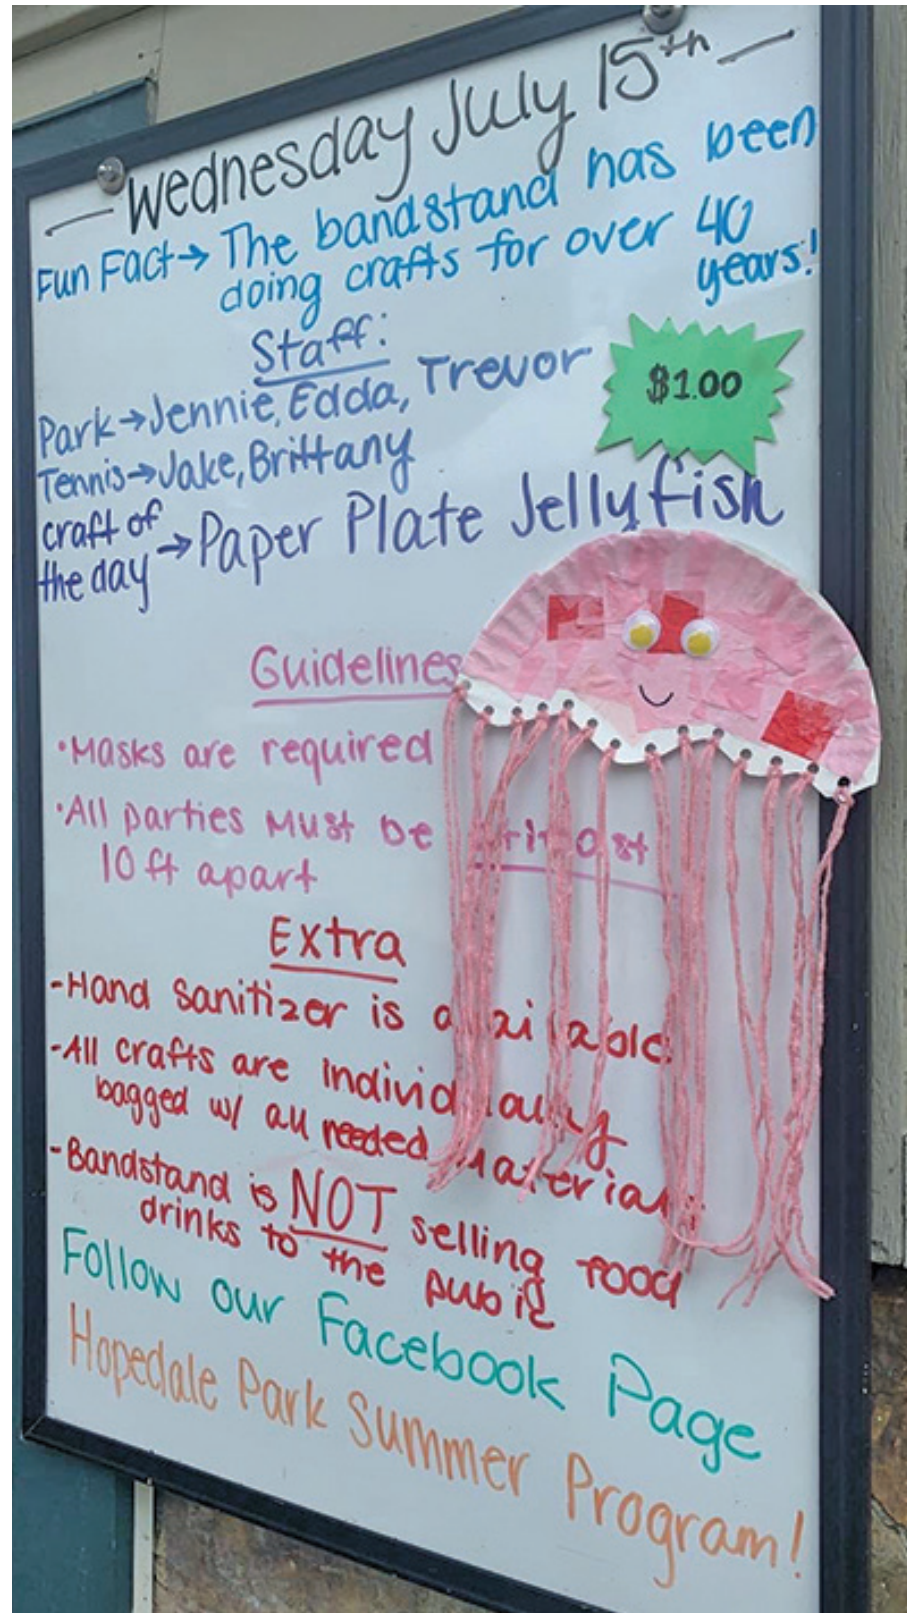 — Wednesday July 15th —
Fun Fact → The bandstand has been
doing crafts for over 40
years!
Staff:
$1.00
Park → Jennie, Edda, Trevor
Tennis → Jake, Brittany
craft of
the day → Paper Plate Jellyfish
Guidelines
• Masks are required
• All parties must be
10 ft apart
Extra
- Hand sanitizer is available.
- All crafts are individually
bagged w/ all needed materials
- Bandstand is NOT selling food
drinks to the
Follow our Facebook Page
Hopedale Park Summer Program!